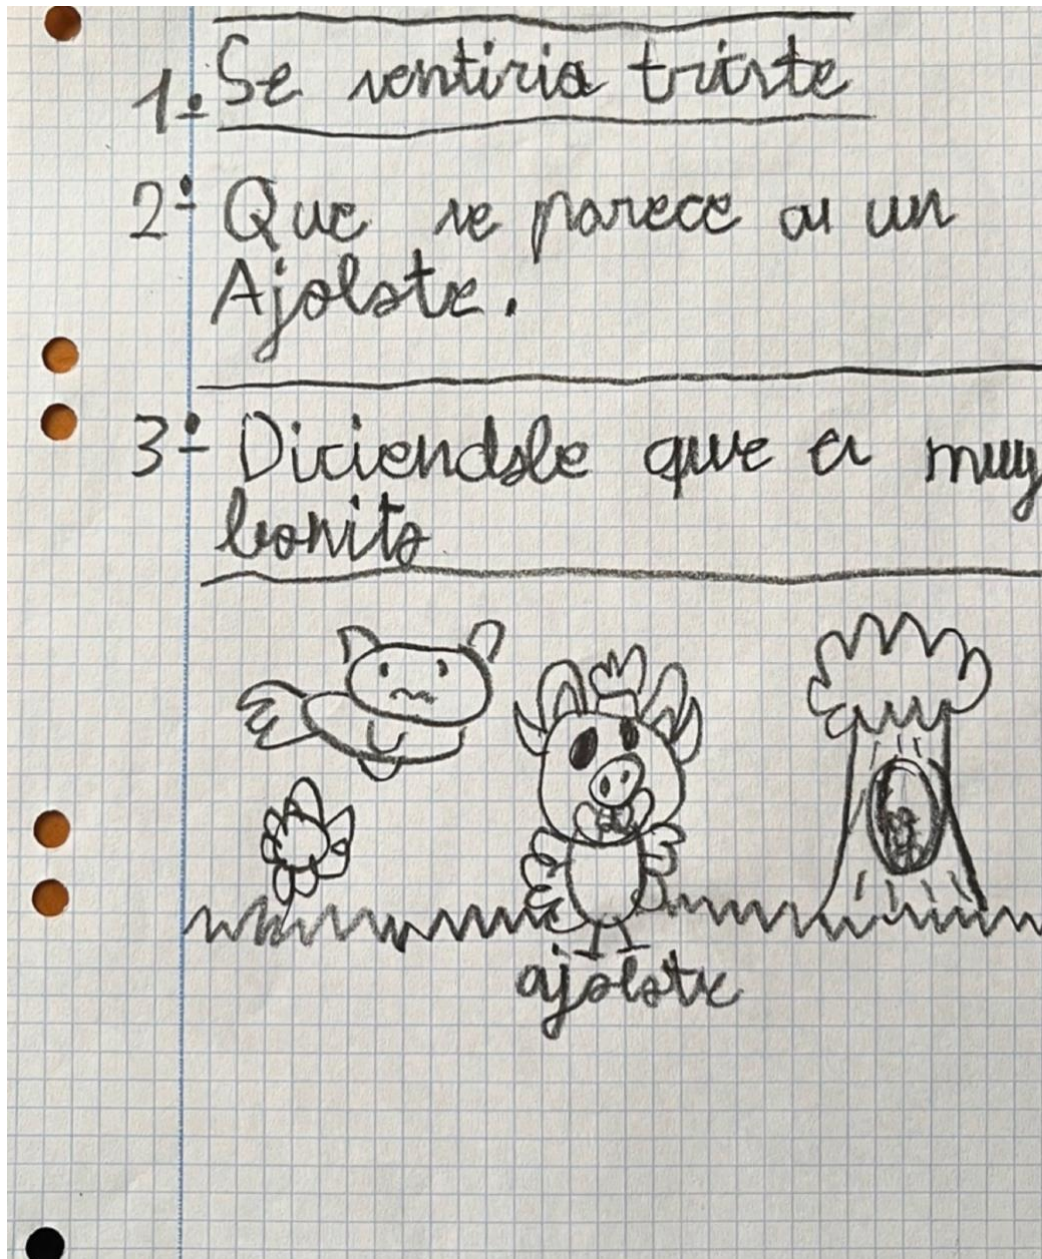 1º Se sentiria triste
2º Que se parece a un
Ajolote.
3º Diciendole que es muy
bonito
ajolote